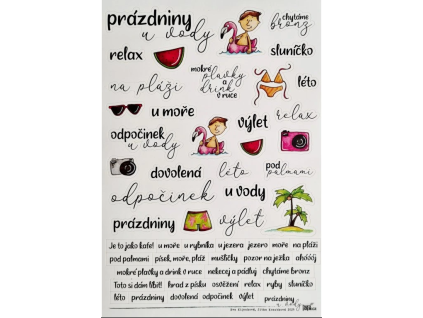 prázdniny
u vody
chytáme
bronz
relax
sluníčko
na pláži
mokré
plavky
a
drink
v ruce
léto
u moře
výlet
relax
odpočinek
u vody
dovolená
léto
pod
palmami
odpočinek
u vody
prázdniny
výlet
Je to jako kafe! u moře u rybníka u jezera jezero moře na pláži
pod palmami písek, moře, pláž mušličky pozor na ježka ahóóój
mokré plavky a drink v ruce nekecej a pádluj chytáme bronz
Toto si dám líbit! hrad z písku osvěžení relax ryby sluníčko
léto prázdniny dovolená odpočinek výlet prázdniny
u vody